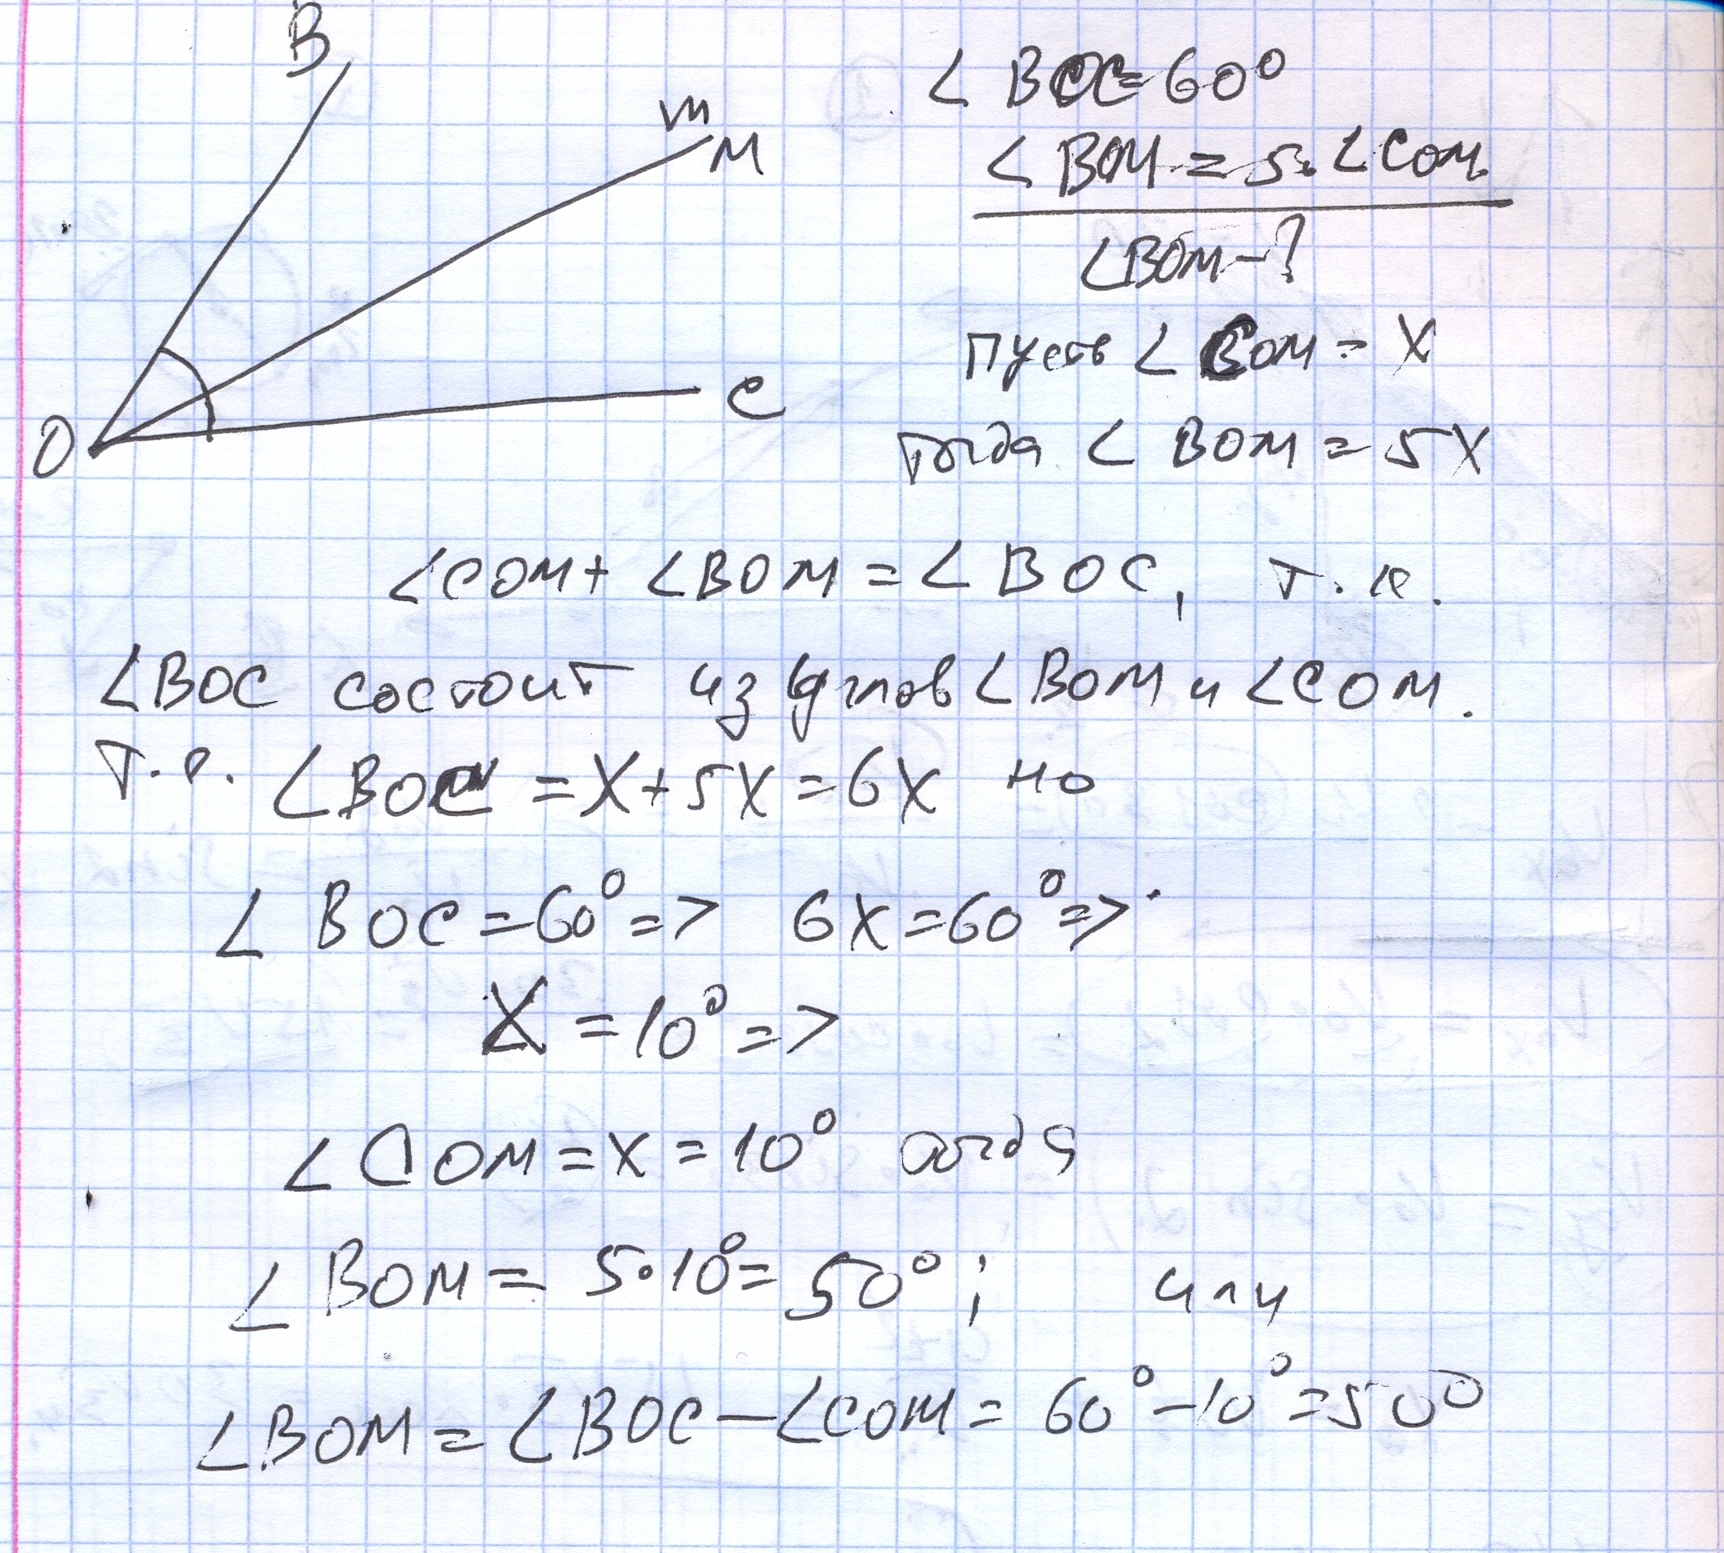 B
m
M
C
O
∠BOC=60°
∠BOM=5·∠COM.
∠BOM-?
Пусть ∠COM=X
тогда ∠BOM=5X
∠COM+∠BOM=∠BOC, т.к.
∠BOC состоит из углов ∠BOM и ∠COM.
т.е. ∠BOC=X+5X=6X но
∠BOC=60°=> 6X=60°=>
X=10°=>
∠COM=X=10° тогда
∠BOM=5·10°=50°; или
∠BOM=∠BOC-∠COM=60°-10°=50°